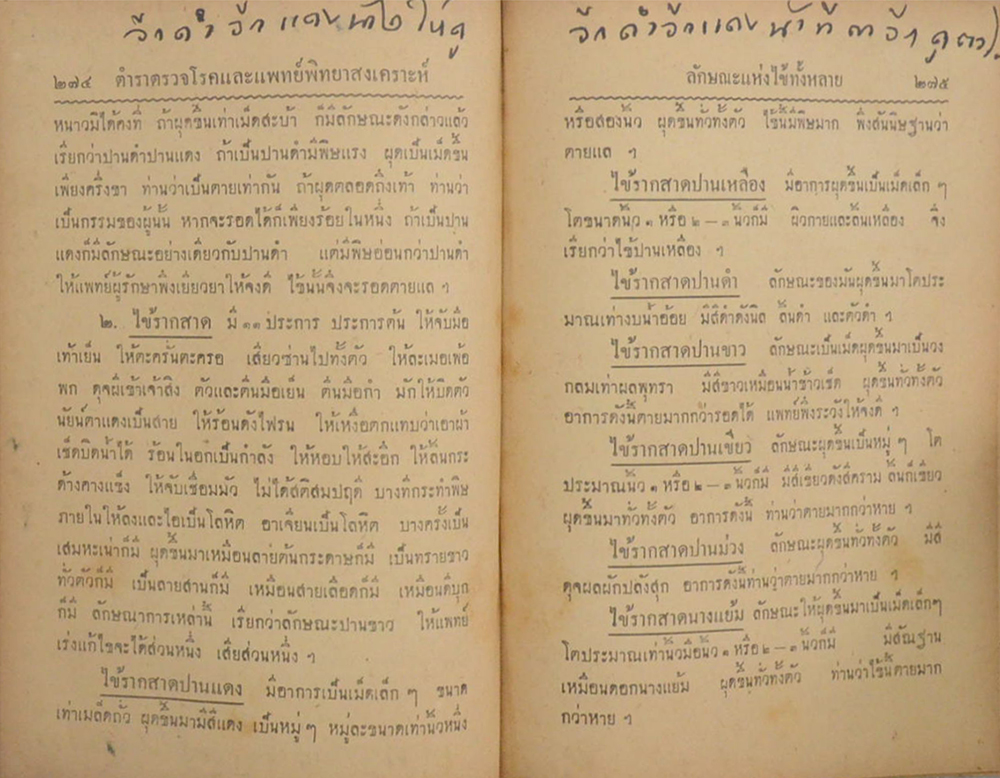 ๒๗๔ ตำราตรวจโรคและแพทย์พิทยาสงเคราะห์
หนาวมิได้คงที่ ถ้าผุดขึ้นเท่าเม็ดสะบ้า ก็มีลักษณะดังกล่าวแล้ว
เรียกว่าปานดำปานแดง ถ้าเป็นปานดำมีพิษแรง ผุดเป็นเม็ดขึ้น
เพียงครึ่งขา ท่านว่าเป็นตายเท่ากัน ถ้าผุดตลอดถึงเท้า ท่านว่า
เป็นกรรมของผู้นั้น หากจะรอดได้ก็เพียงร้อยในหนึ่ง ถ้าเป็นปาน
แดงก็มีลักษณะอย่างเดียวกับปานดำ แต่มีพิษอ่อนกว่าปานดำ
ให้แพทย์ผู้รักษาพึงเยียวยาให้จงดี ไข้นั้นจึงจะรอดตายแล ฯ
๒. ไข้รากสาด มี ๑๑ ประการ ประการต้น ให้จับมือ
เท้าเย็น ให้ตะครั่นตะครอ เสียวซ่านไปทั้งตัว ให้ละเมอเพ้อ
พก ดุจผีเข้าเจ้าสิง ตัวและตีนมือเย็น ตีนมือกำ มักให้บิดตัว
นัยน์ตาแดงเป็นสาย ให้ร้อนดังไฟรน ให้เหงื่อตกแทบว่าเอาผ้า
เช็ดบิดน้ำได้ ร้อนในอกเป็นกำลัง ให้หอบให้สะอึก ให้ลิ้นกระ
ด้างคางแข็ง ให้จับเชื่อมมัว ไม่ได้สติสมปฤดี บางทีกระทำพิษ
ภายในให้ลงและไอเป็นโลหิต อาเจียนเป็นโลหิต บางครั้งเป็น
เสมหะเน่าก็มี ผุดขึ้นมาเหมือนลายต้นกระดาษก็มี เป็นทรายขาว
ทั่วตัวก็มี เป็นลายสานก็มี เหมือนสายเลือดก็มี เหมือนดีบุก
ก็มี ลักษณาการเหล่านี้ เรียกว่าลักษณะปานขาว ให้แพทย์
เร่งแก้ไขจะได้ส่วนหนึ่ง เสียส่วนหนึ่ง ฯ
ไข้รากสาดปานแดง มีอาการเป็นเม็ดเล็ก ๆ ขนาด
เท่าเมล็ดถั่ว ผุดขึ้นมามีสีแดง เป็นหมู่ ๆ หมู่ละขนาดเท่านิ้วหนึ่ง
ลักษณะแห่งไข้ทั้งหลาย ๒๗๕
หรือสองนิ้ว ผุดขึ้นทั่วทั้งตัว ไข้นี้มีพิษมาก พึงสันนิษฐานว่า
ตายแล ฯ
ไข้รากสาดปานเหลือง มีอาการผุดขึ้นเป็นเม็ดเล็ก ๆ
โตขนาดนิ้ว ๑ หรือ ๒ — ๓ นิ้วก็มี ผิวกายและลิ้นเหลือง จึง
เรียกว่าไข้ปานเหลือง ฯ
ไข้รากสาดปานดำ ลักษณะของมันผุดขึ้นมาโตประ
มาณเท่างบน้ำอ้อย มีสีดำดังนิล ลิ้นดำ และตัวดำ ฯ
ไข้รากสาดปานขาว ลักษณะเป็นเม็ดผุดขึ้นมาเป็นวง
กลมเท่าผลพุทรา มีสีขาวเหมือนน้ำข้าวเช็ด ผุดขึ้นทั่วทั้งตัว
อาการดังนี้ตายมากกว่ารอดได้ แพทย์พึงระวังให้จงดี ฯ
ไข้รากสาดปานเขียว ลักษณะผุดขึ้นเป็นหมู่ ๆ โต
ประมาณนิ้ว ๑ หรือ ๒ — ๓ นิ้วก็มี มีสีเขียวดังสีคราม ลิ้นก็เขียว
ผุดขึ้นมาทั่วทั้งตัว อาการดังนี้ ท่านว่าตายมากกว่าหาย ฯ
ไข้รากสาดปานม่วง ลักษณะผุดขึ้นทั่วทั้งตัว มีสี
ดุจผลผักปลังสุก อาการดังนี้ท่านว่าตายมากกว่าหาย ฯ
ไข้รากสาดนางแย้ม ลักษณะให้ผุดขึ้นมาเป็นเม็ดเล็กๆ
โตประมาณเท่านิ้วมือนิ้ว ๑ หรือ ๒ — ๓ นิ้วก็มี มีสัณฐาน
เหมือนดอกนางแย้ม ผุดขึ้นทั่วทั้งตัว ท่านว่าไข้นี้ตายมาก
กว่าหาย ฯ